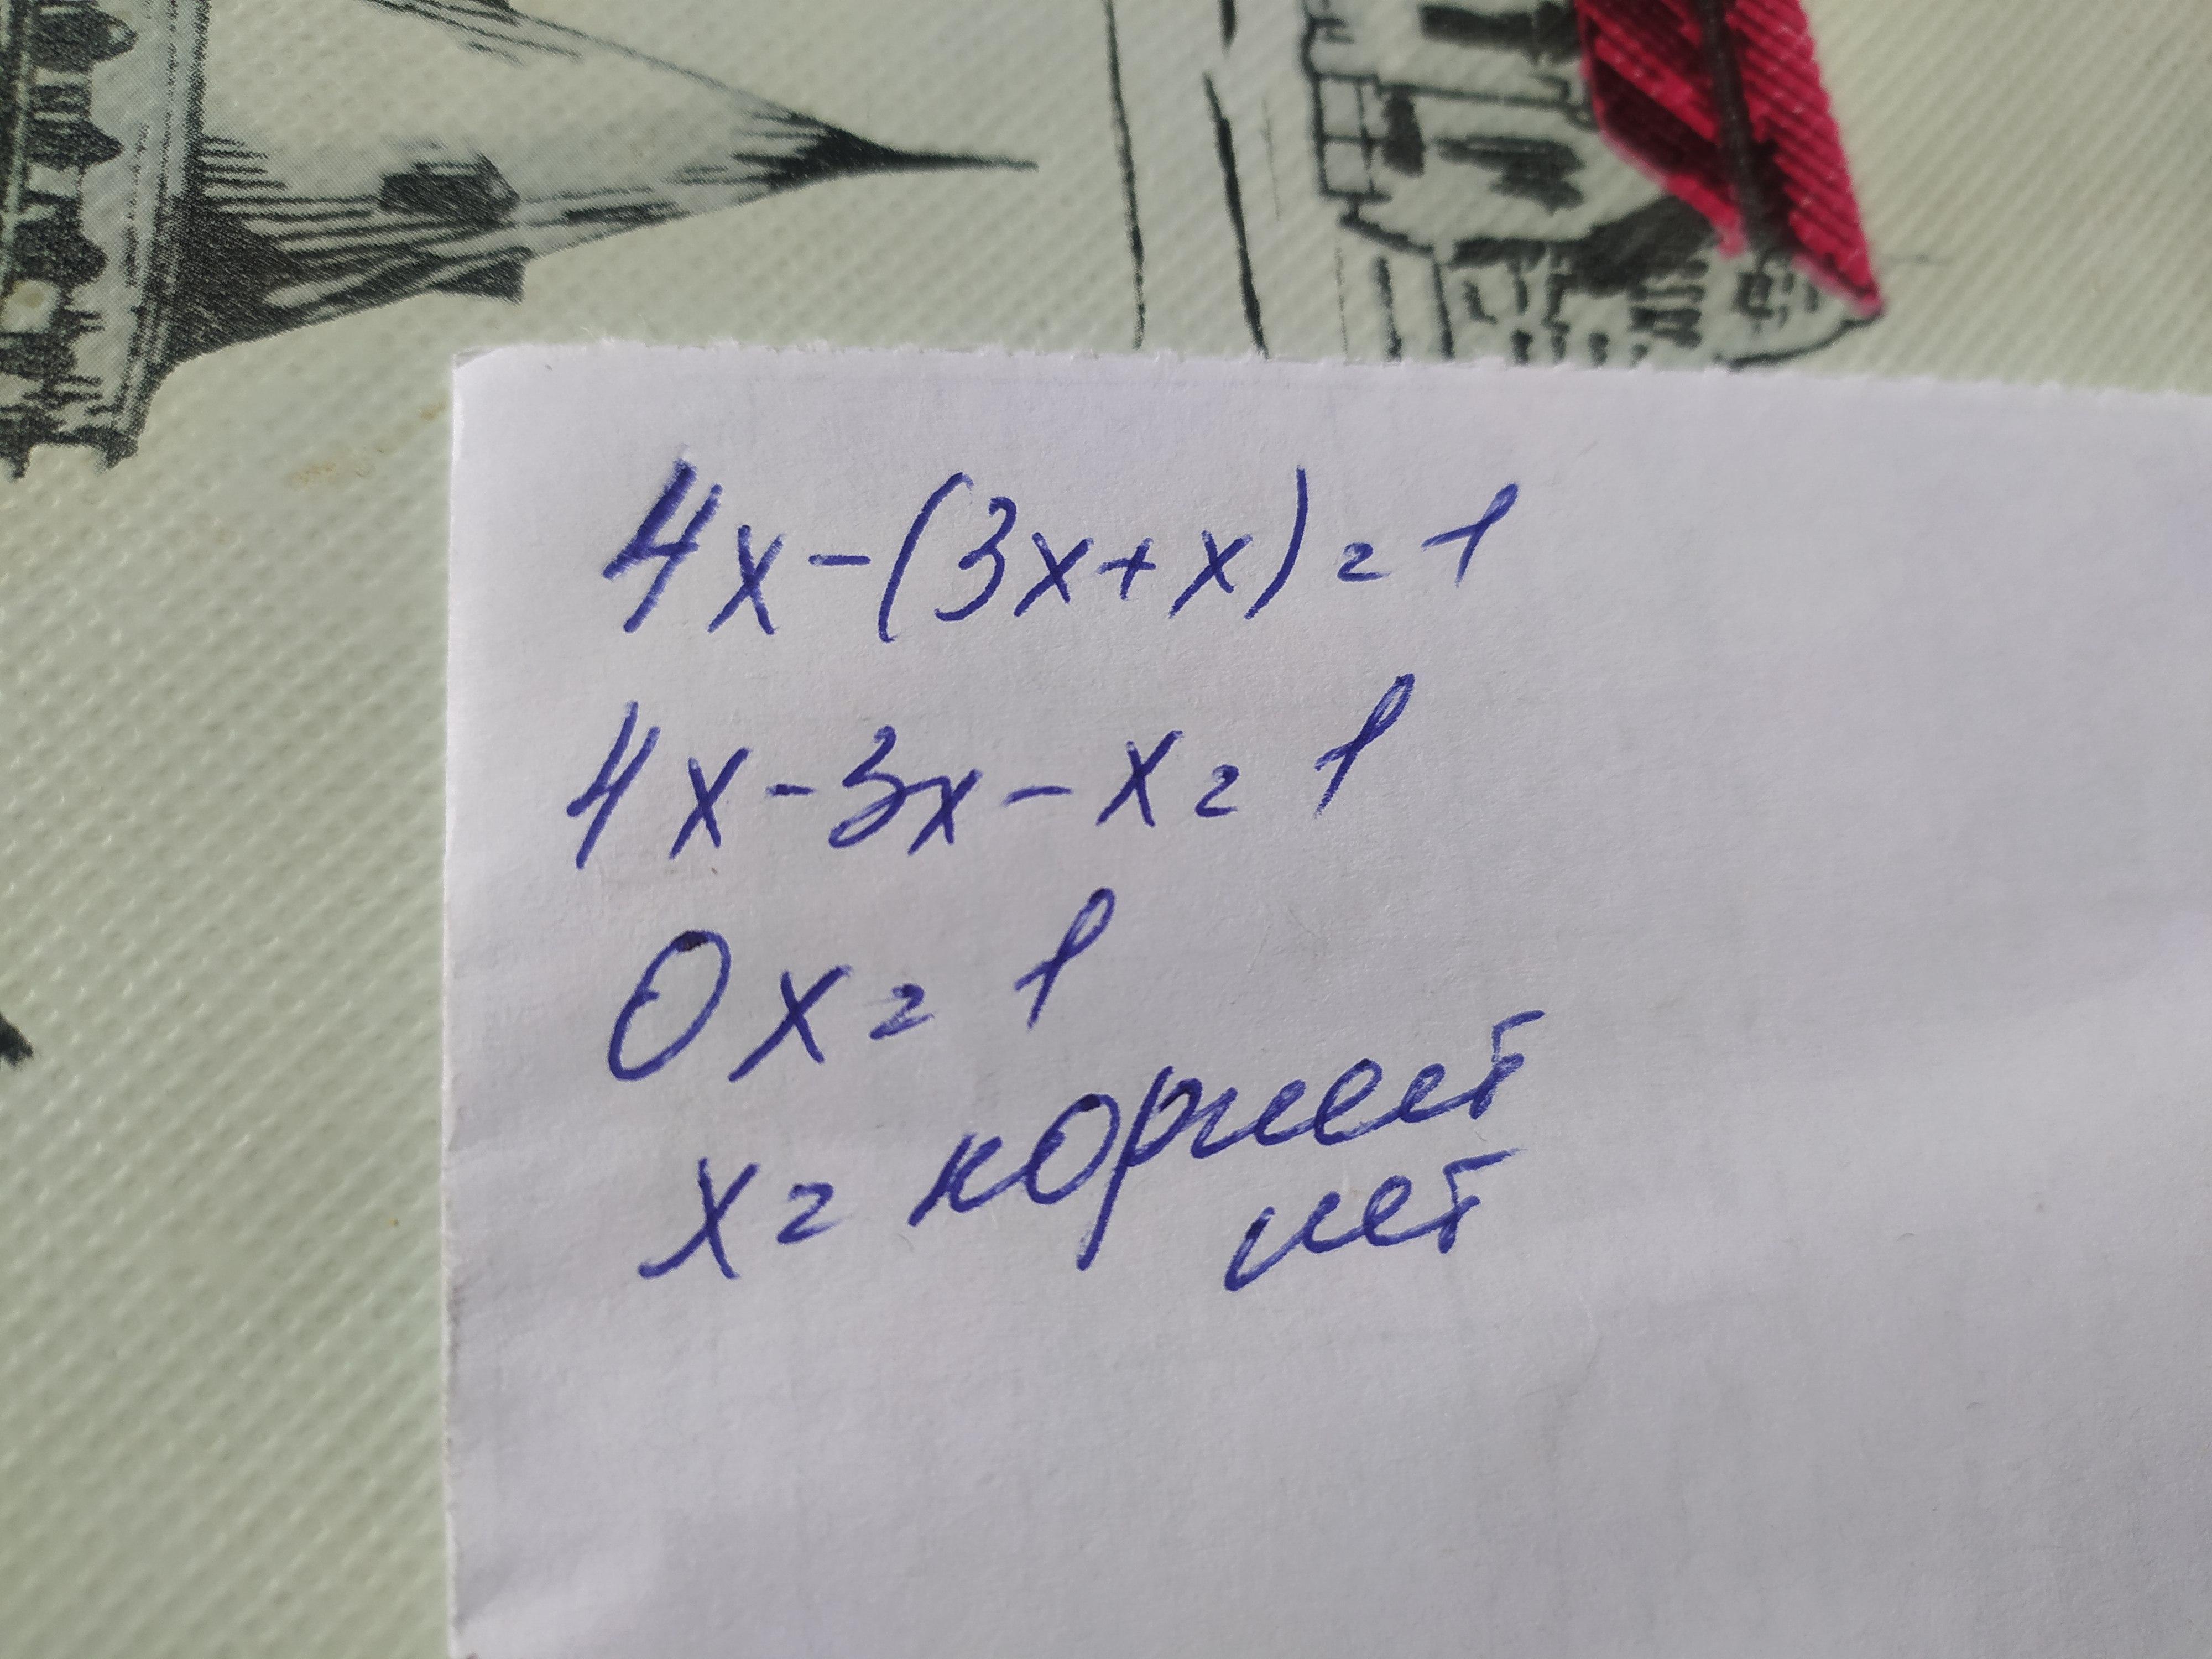 4x-(3x+x)=1
4x-3x-x=1
0x=1
x=корней
нет